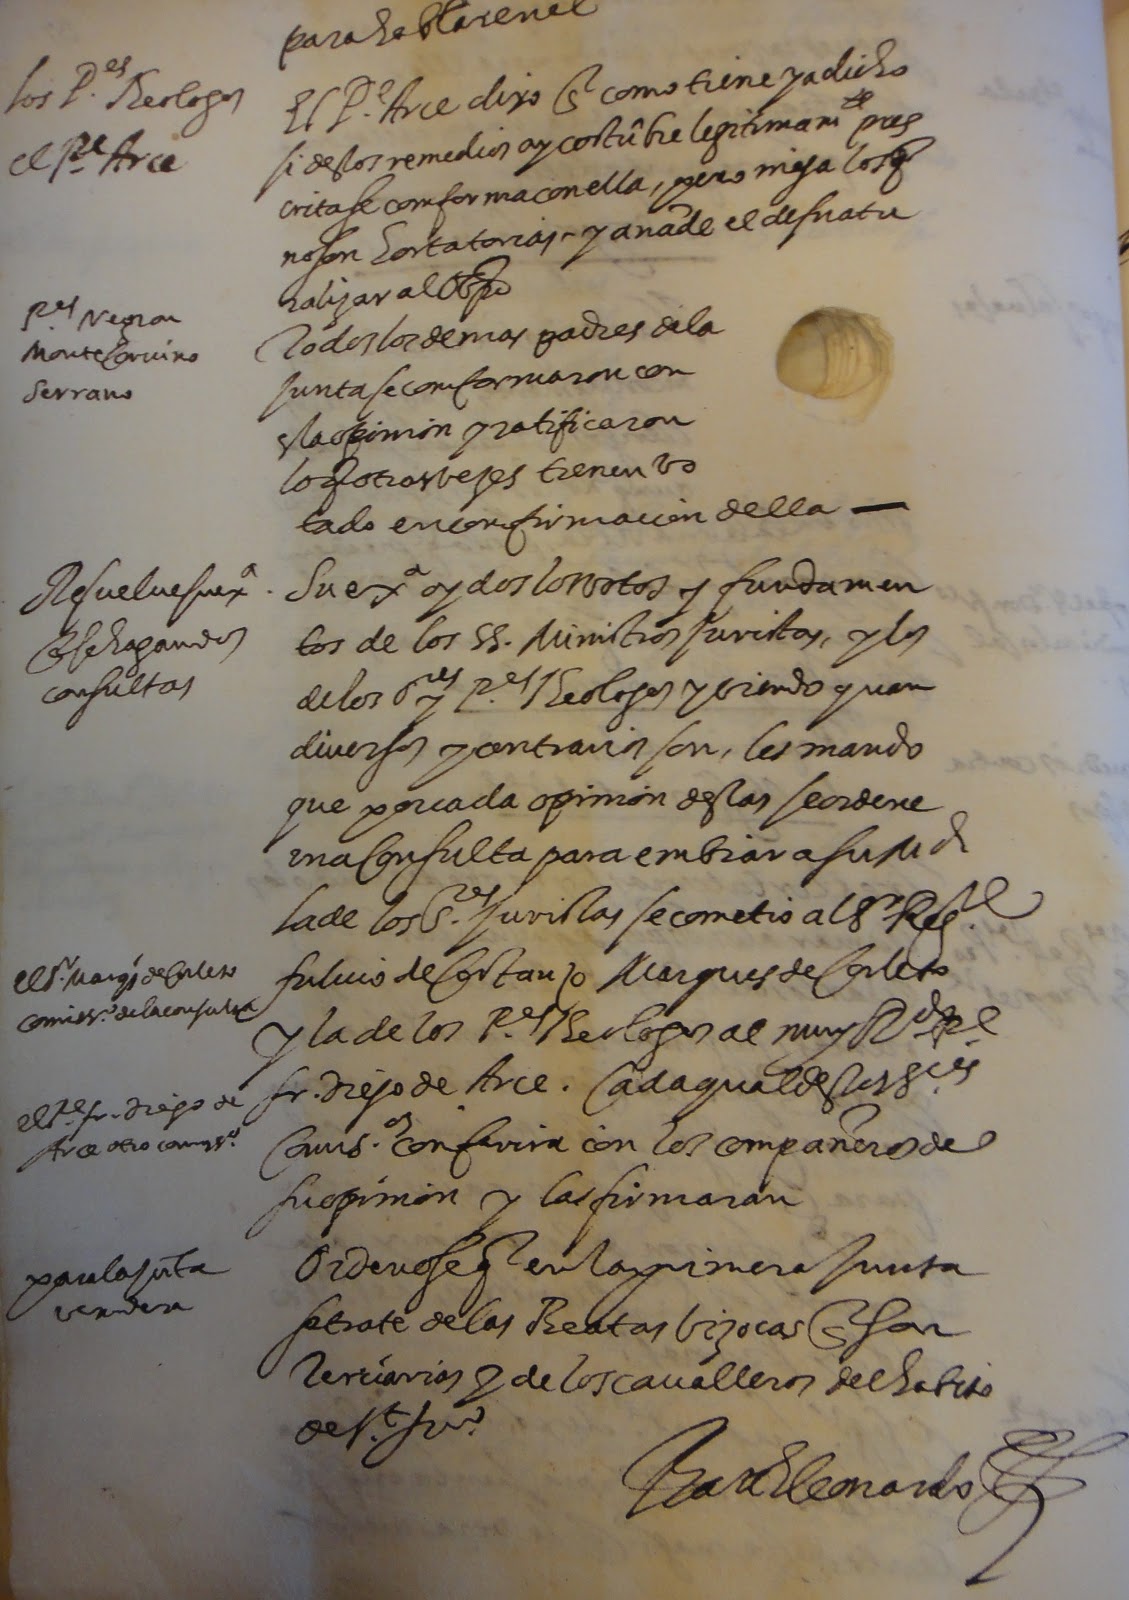 para hablar en el
los P.es Theologos
el P.e Arce
El P.e Arce dixo q como tiene ya dicho
si destos remedios ay costũbre legitimam.te pres
crita se comforma con ella, pero niega los q
no son hortatorios, y anade el desnatu
ralizar al Obpo
P.es Negron
Montecorvino
Serrano
Todos los demas padres dela
junta se comformaron con
esta opinion y ratificaron
lo q otras vezes tienen vo
tado en confirmacion della —
Resuelve su ex.a
q se hagan dos
consultas
Su ex.a oydos los votos y fundamen
tos de los SS. Ministros juristas, y los
de los S.res y P.es Theologos y viendo quan
diversos y contrarios son, les mando
que por cada opinion destas se ordene
una consulta para embiar a su M.d
la de los S.res juristas se cometio al S.r Reg.te
fulvio de Costanzo Marques de Corleto
el S.r Marq.s de Corleto
comiss.o de la consulta
y la de los P.es Theologos al muy R.do P.e
fr. Diego de Arce. Cada qual destos S.res
el P.e fr. Diego de
Arce otro comiss.o
Comis.os conferira con los compañeros de
su opinion y las firmaran
para la jũta
venidera
Ordenose q en la primera junta
se trate de las Beatas bizocas q son
terciarias y de los cavalleros del habito
de S.t Ju.o
Bar.e Leonardo